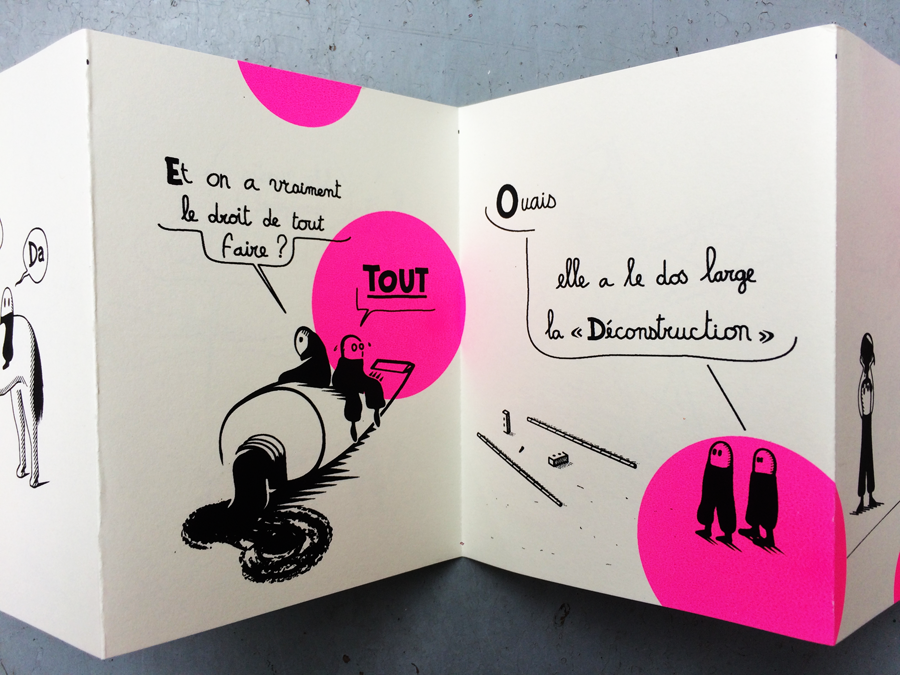 Da
Et on a vraiment
le droit de tout
faire ?
TOUT
Ouais
elle a le dos large
la « Déconstruction »